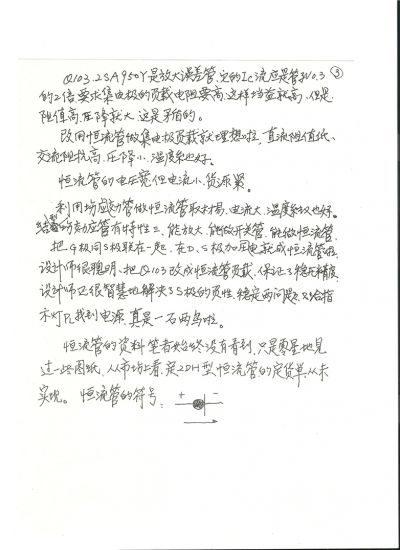 Q103.2SA950Y是放大误差管,它的Ic流应是管子0.3 ③
的2倍要求集电极的负载电阻要高,这样增益就高,但是
阻值高,压降就大,这是矛盾的。
改用恒流管做集电极负载就理想啦,直流阻值低、
交流阻抗高,压降小,温度系也好。
恒流管的电压宽但电流小,货源紧。
利用场效应管做恒流管取材易,电流大、温度系数也好。
结型场效应管有特性三,能放大,能做开关管,能做恒流管,
把G极同S极联在一起,在D、S极加电就成恒流管啦,
设计师很聪明,把Q103改成恒流管负载,保证了稳压精度,
设计师又很智慧地解决了S极的负性,稳定两问题,又给指
示灯PL找到电源,真是一石两鸟啦。
恒流管的资料笔者始终没有看到,只是零星地见
过一些图纸,从市场上看,定2DH型恒流管的定货单,从未
实现。恒流管的符号:
+ −